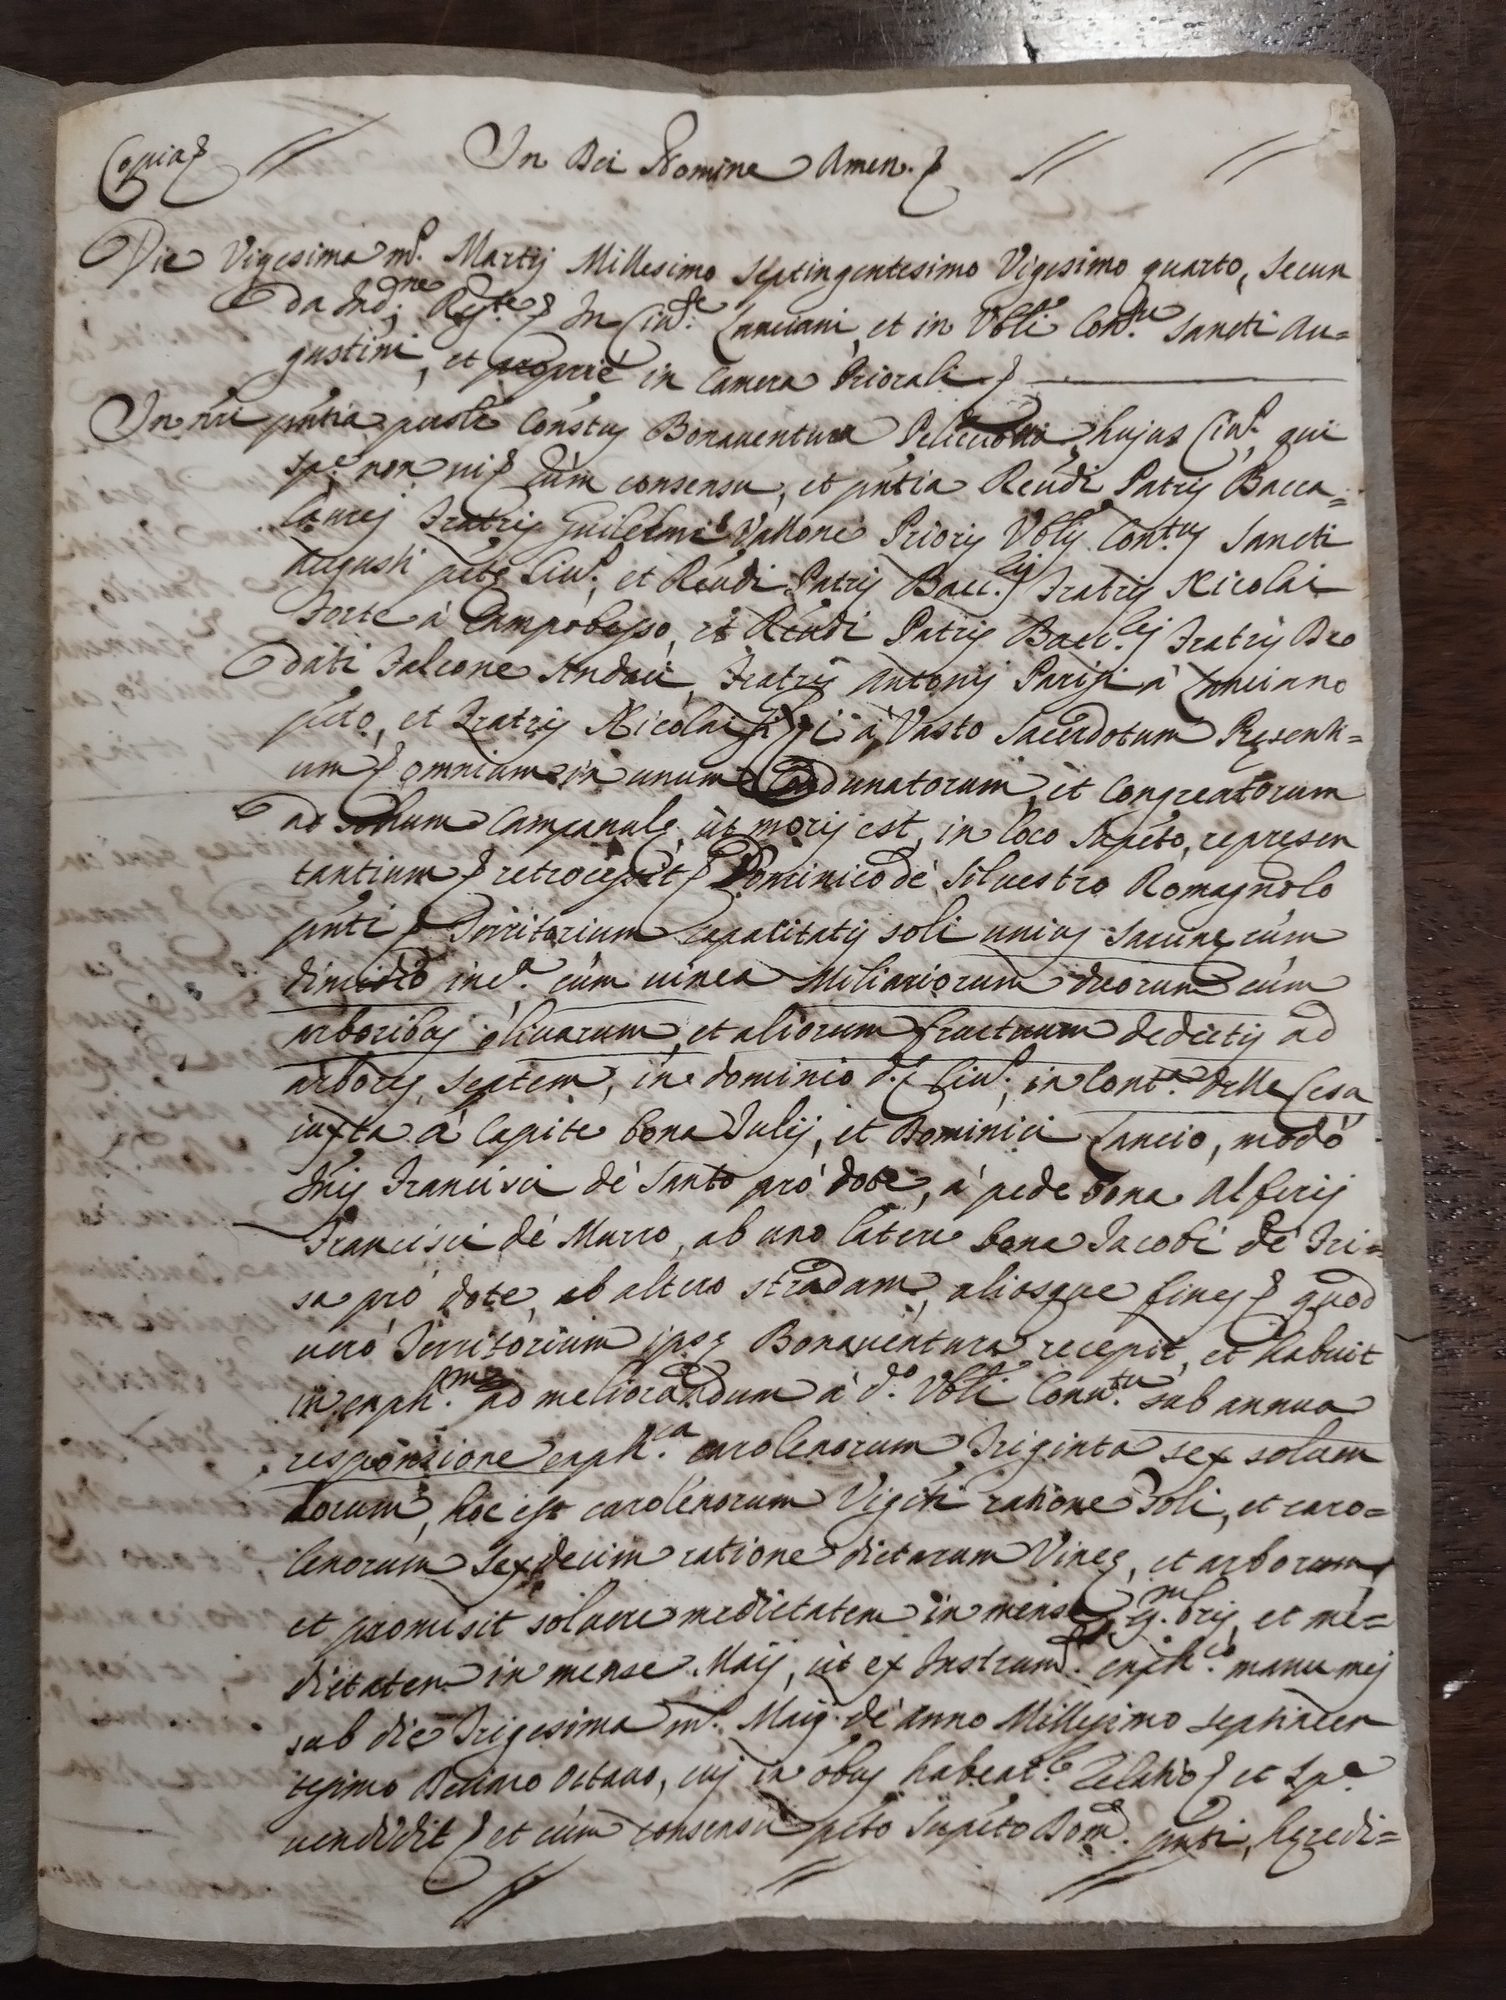 Copia
In Dei Nomine Amen.
Die Vigesima m.s Martij Millesimo Septingentesimo Vigesimo quarto, secun
da Ind.ne Reg.te In Civ.e Lanciani, et in Vbli Con.tu Sancti Au=
gustini, et propriè in Camera Priorali
In nri pntia psolr Constus Bonauentura hujus Civ.s, qui
sp.e non ui cùm consensu, et pntia Reudi Patris Bacca=
laurej Fratris Guilelmi Vallone Prioris Vblis Con.tus Sancti
Augusti pcte Civ.s, et Reudi Patris Bacc.lej Fratris Nicolai
Forte à Campobasso, et Reudi Patris Bacc.lej Fratris Deo
dati Falcone Fratris Antonij Parisi à Lanciano
pcto, et Fratris Nicolai à Vasto Sacerdotum Resenti=
um omnium in unum Coadunatorum, et Congreatorum
ad sonum Campanule, ùt moris est, in loco supcto, represen
tantium retrocessit Dominico dè Siluestro Romagnolo
pnti Territorium capacitatis soli unius saume cùm
dimidio in c.a cùm uinea Miliariorum duorum cùm
arboribus oliuarum, et aliorum fructuum dedictis ad
arbores septem, in dominio d.e Civ.s, in Cont.a delle Cesa
iuxta à Capite bona Julij, et Dominici Lancio, modò
Francisci dè Santo prò dote, à pede bona Alferij
Francisci dè Marro, ab uno latere bona Jacobi dè Fri=
sa prò dote, ab altero stradam, aliosque fines quod
uerò Territorium ipse Bonauentura recepit, et habuit
in enph.m ad meliorandum à d.o Vbli Conu.tu sub annua
responsione enph.ca carolenorum Triginta sex soluen
dorum, hoc est carolenorum Viginti ratione soli, et caro=
lenorum sexdecim ratione dictarum Vinee, et arborum,
et promisit soluere medietatem in mense 9.mbris, et me=
dietatem in mense Maij, ùt ex Instrum.to enph.co manu mej
sub die Trigesima m.s Maij dè Anno Millesimo septincen
tesimo Decimo octauo, cuj in obus habeat.r relatio et sp.e
uendidit et cùm consensu pcto supcto Dom.co pnti, heredi=